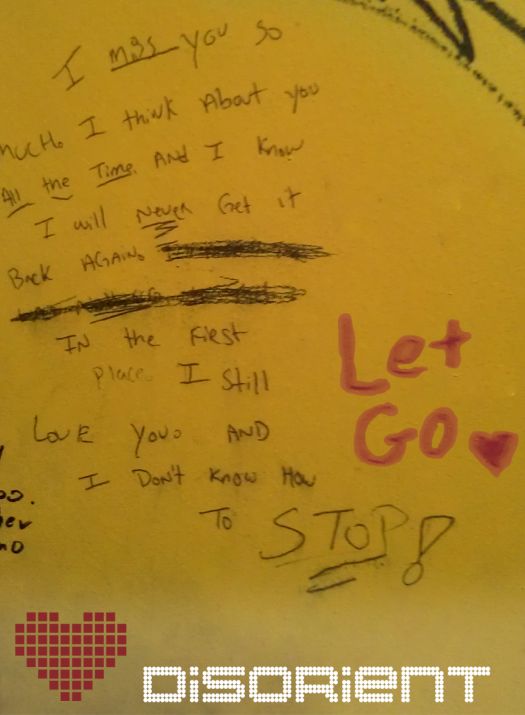 I miss you so
much. I think About you
All the Time. And I know
I will Never Get it
Back AGAIN.
IN the FIRST
place. I still
Love you. AND
I DON'T know How
To STOP!
Let
GO
DiSORiENT